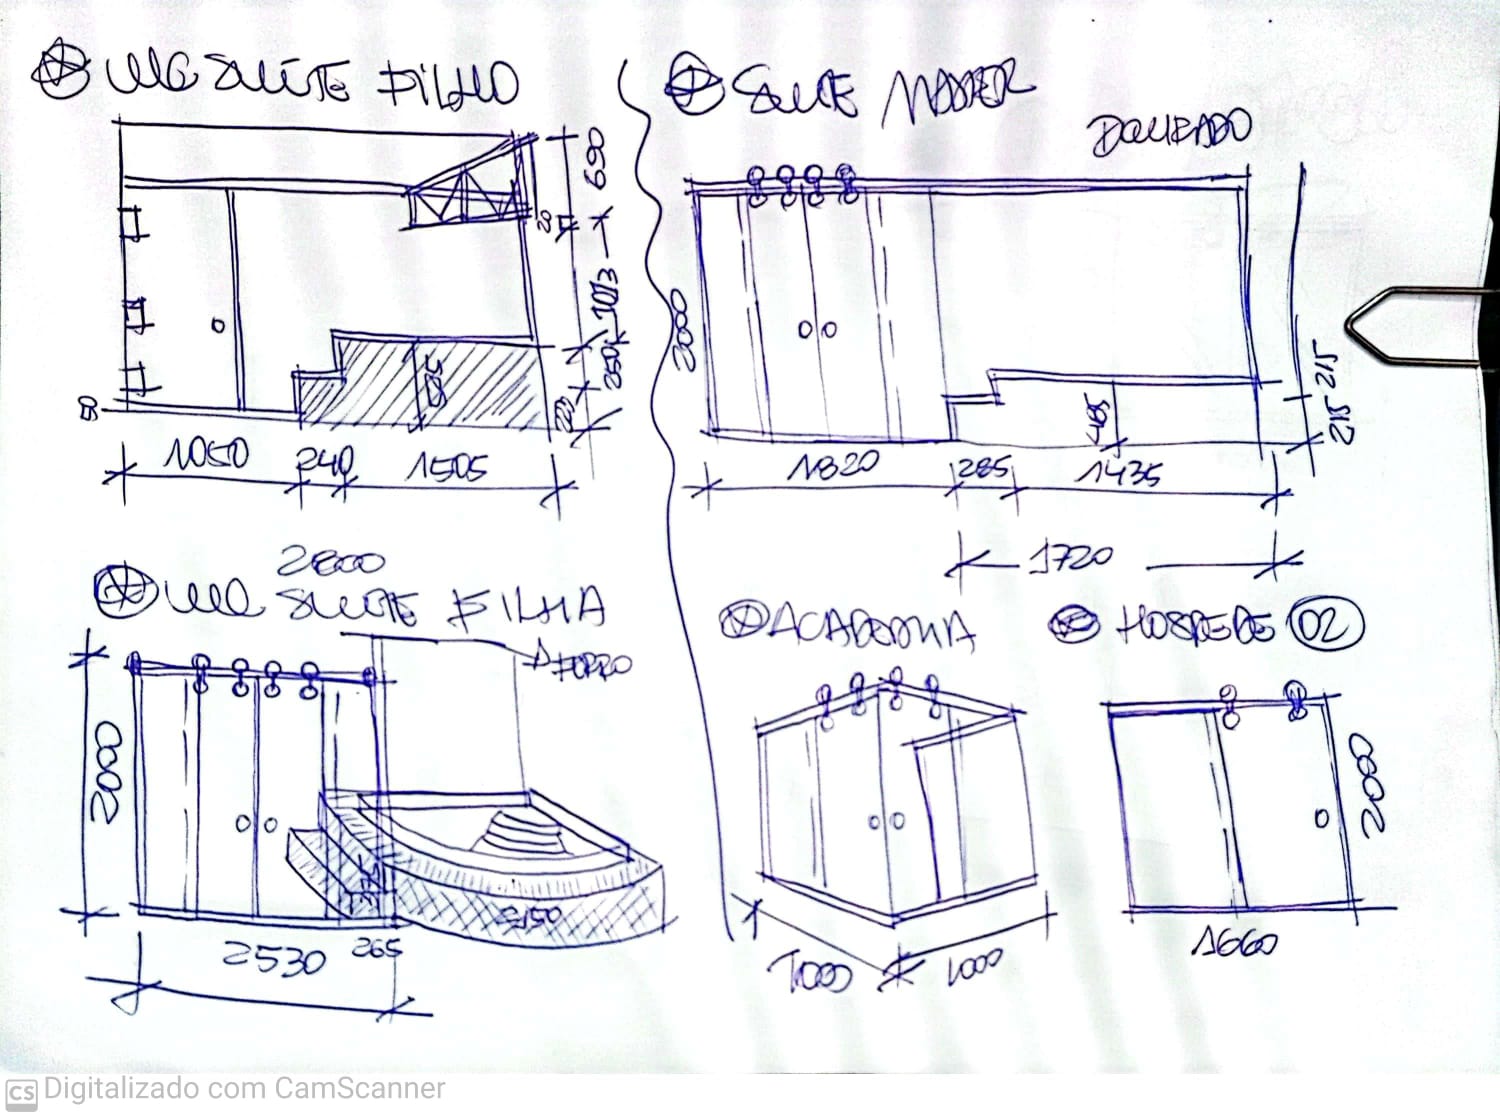 WC SUÍTE FILHO
690
20
1013
250
50
1050
240
1505
2800
SUITE MASTER
DOURADO
2000
215
215
1820
285
1435
1720
WC SUITE FILHA
FORRO
2000
2530
265
ACADEMIA
1000
1000
HOSPEDE 02
2000
1660
CS Digitalizado com CamScanner